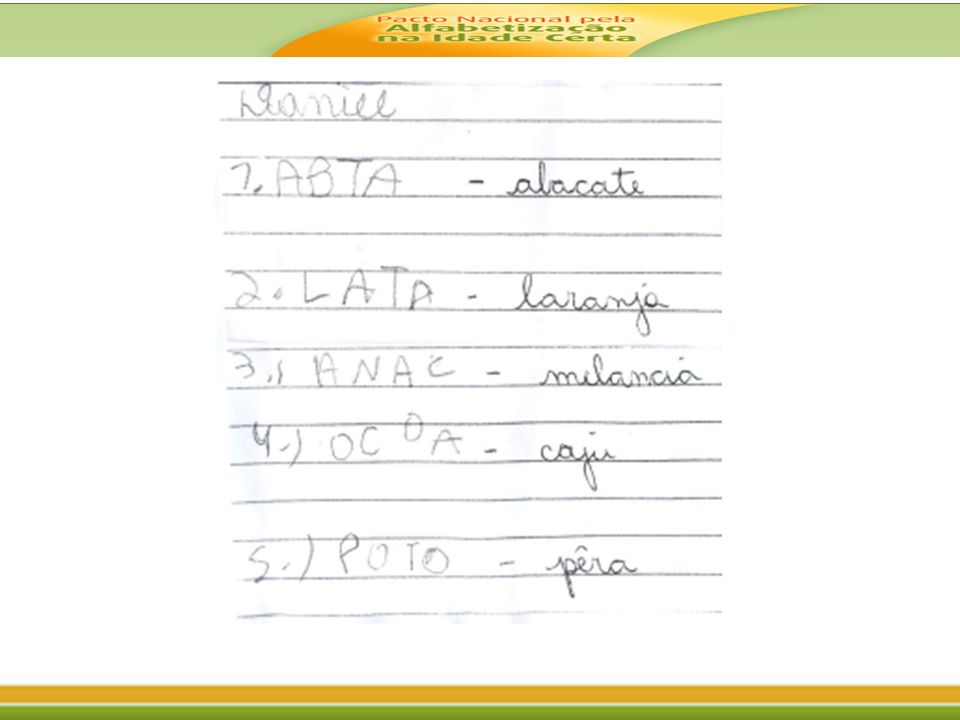 Pacto Nacional pela
Alfabetização
na Idade Certa
Daniel
1. ABTA - abacate
2. LATA - laranja
3.) ANAC - melancia
4.) OCOA - caju
5.) POTO - pêra